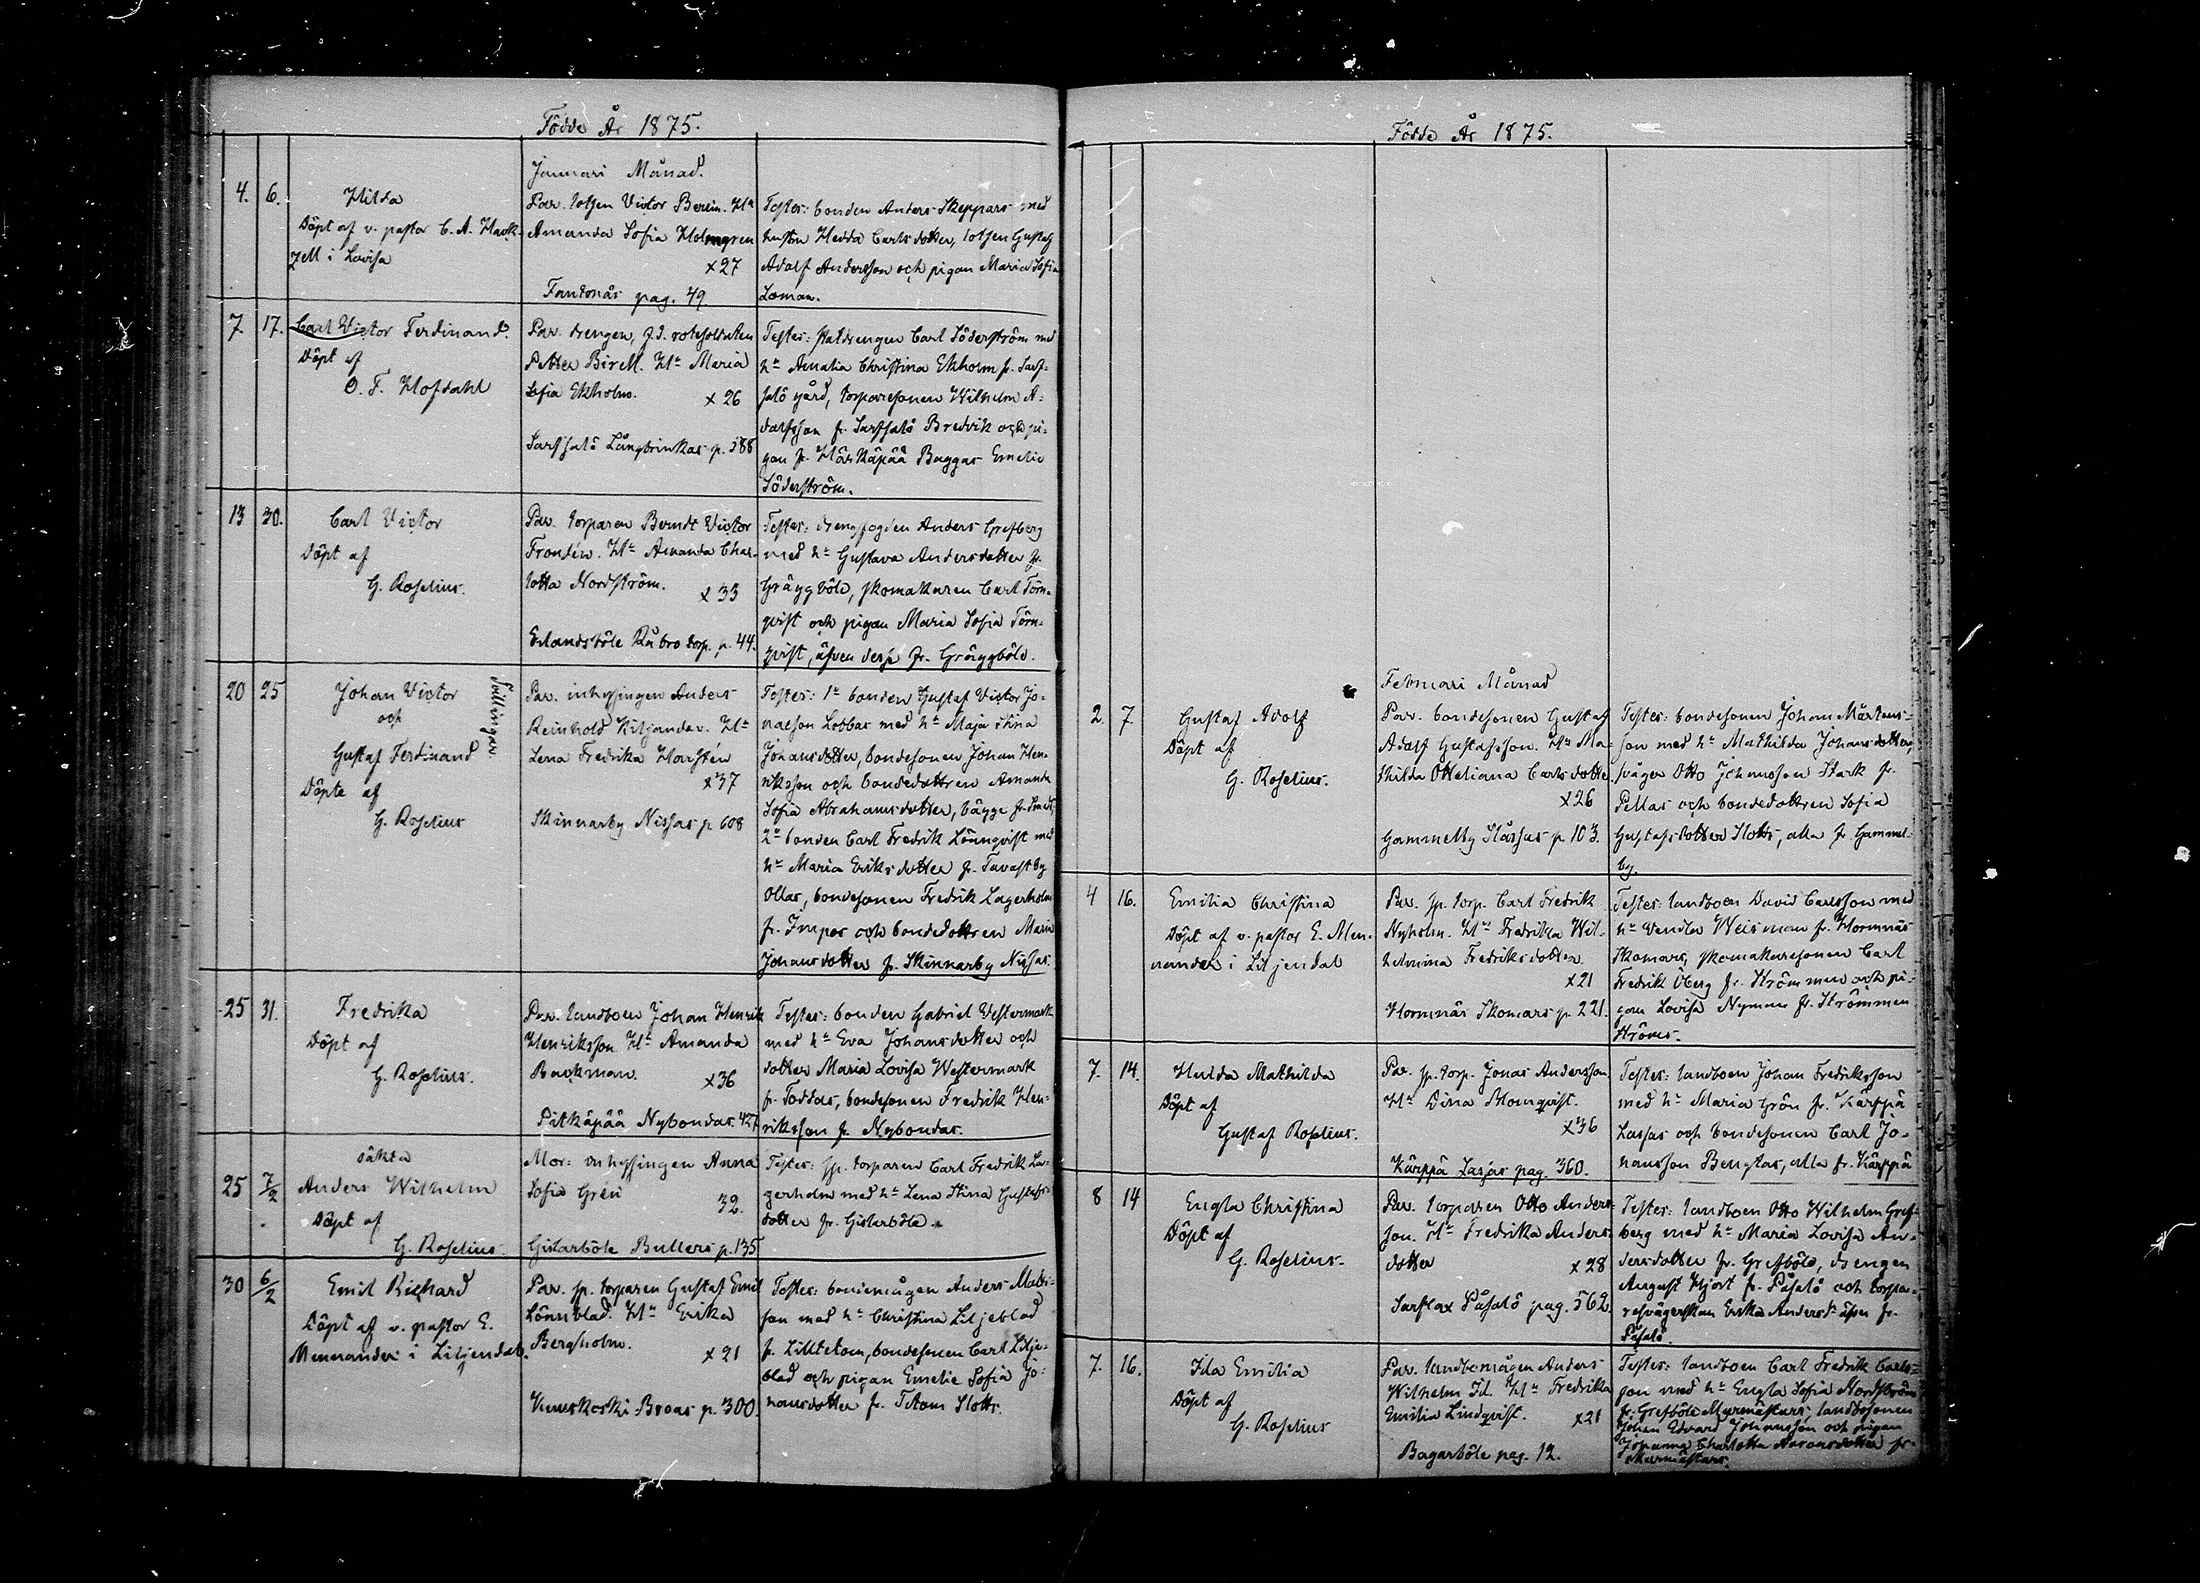 Födde År 1875.
Januari Månad.
4. 6.
Hilda
Döpt af v. pastor C. A. Hack-
zell i Lovisa
Par. lotsen Victor Berlin. Hu
Amanda Sofia Holmgren
x 27
Fantsnäs pag. 49.
Testes: bonden Anders Skeppars med
hustru Hedda Carlsdotter, lotsen Gustaf
Adolf Andersson och pigan Maria Sofia
Loman.
7. 17.
Carl Victor Ferdinand.
Döpt af
O. F. Hofdahl
Par. drengen, f.d. rotesoldaten
Petter Birell. Hu Maria
Sofia Ekholm.
x 26
Sarfsalö Långbrinkas p. 588
Testes: statdrengen Carl Söderström med
hu Amalia Christina Ekholm fr. Sarf-
salö gård, torparesonen Wilhelm A-
dolfsson fr. Sarfsalö Bredvik och pi-
gan fr. Härkäpää Baggas Emelie
Söderström.
13 30.
Carl Victor
Döpt af
G. Roselius.
Par. torparen Berndt Victor
Frondén. Hu Amanda Char-
lotta Nordström.
x 33
Erlandsböle Råbro torp. p. 44.
Testes: drengfogden Anders Grefberg
med hu Gustava Andersdotter fr.
Gräggböle, skomakaren Carl Törn-
qvist och pigan Maria Sofia Törn-
qvist, äfven desse fr. Gräggböle.
20 25
Johan Victor
och
Gustaf Ferdinand
Tvillingar
Döpte af
G. Roselius
Par. inhysingen Anders
Reinhold Kiljander. Hu
Lena Fredrika Harstén
x 37
Skinnarby Nissas p 608
Testes: 1o bonden Gustaf Victor Jo-
nasson Lobbas med hu Maja Stina
Johansdotter, bondesonen Johan Hen-
riksson och bondedottren Amanda
Sofia Abrahamsdotter, bägge fr. Smeds,
2o bonden Carl Fredrik Lönnqvist med
hu Maria Eriksdotter fr. Tavastby
Ollas, bondesonen Fredrik Lagerholm
fr. Impos och bondedottren Maria
Johansdotter fr. Skinnarby Nissas
25 31.
Fredrika
Döpt af
G. Roselius.
Par. landboen Johan Henrik
Henriksson Hu Amanda
Backman.
x 36
Pitkäpää Nybondas. 427
Testes: bonden Gabriel Westermark
med hu Eva Johansdotter och
dotter Maria Lovisa Westermark
fr. Toddas, bondesonen Fredrik Hen-
riksson fr. Nybondas.
25 7/2
oäkta
Anders Wilhelm
Döpt af
G. Roselius.
Mor: inhysingen Anna
Sofia Grén
32.
Gislarböle Bullers p. 135
Testes: sp. torparen Carl Fredrik La-
gerholm med hu Lena Stina Gustafs-
dotter fr. Gislarböle.
30 6/2
Emil Richard
Döpt af v. pastor E.
Menander i Liljendal.
Par. sp. torparen Gustaf Emil
Lönnblad. Hu Erika
Bergholm.
x 21
Kuuskoski Broas p. 300.
Testes: bondemågen Anders Mats-
son med hu Christina Liljeblad
fr. Lilltetom, bondesonen Carl Lilje-
blad och pigan Emelie Sofia Jo-
hansdotter fr. Tetom Slotts.
Födde År 1875.
Februari Månad
2. 7.
Gustaf Adolf
Döpt af
G. Roselius.
Par. bondesonen Gustaf
Adolf Gustafsson. Hu Ma-
thilda Ottiliana Carlsdotter.
x 26
Gammelby Slåssas p 103.
Testes: bondesonen Johan Mårtens-
son med hu Mathilda Johansdotter,
svåger Otto Johansson Stark fr.
Pellas och bondedottren Sofia
Gustafsdotter Slotts, alla fr. Gammel-
by.
4 16.
Emilia Christina
Döpt af v. pastor E. Men-
nander i Liljendal
Par. sp. torp. Carl Fredrik
Nyholm. Hu Fredrika Wil-
helmina Fredriksdotter
x 21
Hormnäs Skomars p. 221.
Testes: landboen David Carlsson med
hu Wendla Weisman fr. Hormnäs
Skomars, skomakaresonen Carl
Fredrik Öberg fr. Strömmen och pi-
gan Lovisa Nyman fr. Strömmen
Ströms.
7. 14.
Hulda Mathilda
Döpt af
Gustaf Roselius.
Par. sp. torp. Jonas Andersson
Hu Dina Blomqvist.
x 36
Kärppä Lassas pag. 360.
Testes: landboen Johan Fredriksson
med hu Maria Grön fr. Kärppä
Lassas och bondesonen Carl Jo-
hansson Bengtas, alla fr. Kärppä
8 14
Engla Christina
Döpt af
G. Roselius.
Par. torparen Otto Anders-
son. Hu Fredrika Anders-
dotter
x 28
Sarflax Påsalö pag. 562
Testes: landboen Otto Wilhelm Gref-
berg med hu Maria Lovisa An-
dersdotter fr. Grefböle, drengen
August Hjort fr. Påsalö och torpa-
resvägerskan Erika Andersdr äfven fr.
Påsalö.
7. 16.
Ida Emilia
Döpt af
G. Roselius
Par. landbomågen Anders
Wilhelm Id. Hu Fredrika
Emilia Lindqvist.
x 21
Bagarböle pag. 12.
Testes: landboen Carl Fredrik Carls-
son med hu Engla Sofia Nordström
fr. Grefböle Murmästars, landbosonen
Johan Edvard Johansson och pigan
Johanna Charlotta Aaronsdotter fr.
Murmästars.